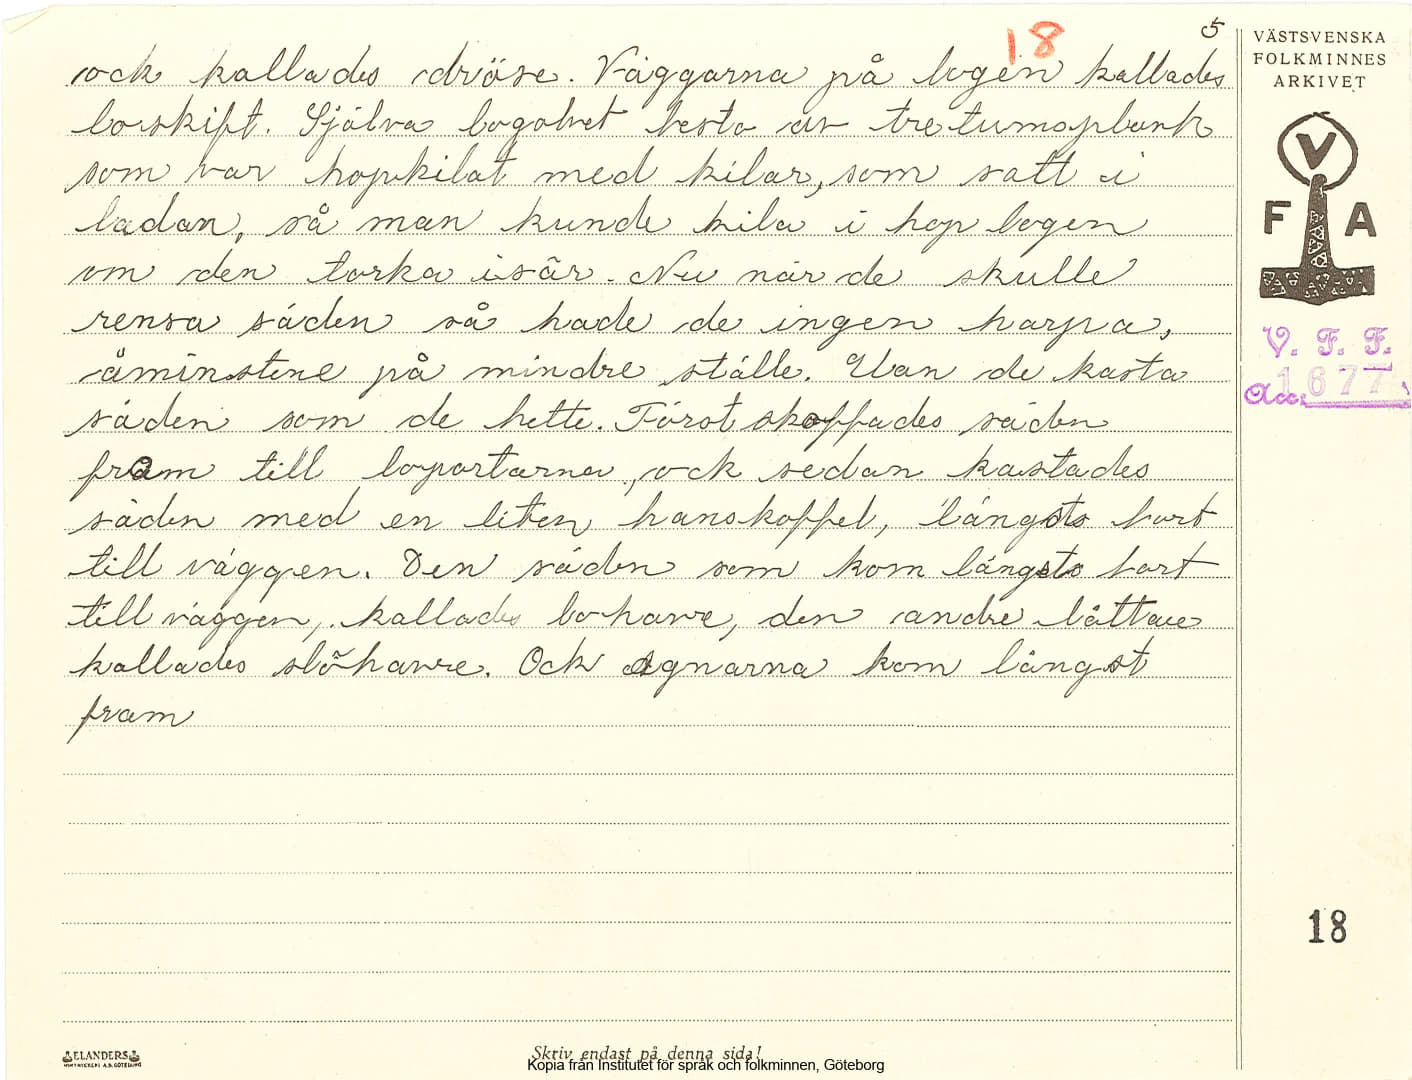 5
18
ock kallades dröse. Väggarna på logen kallades
loskift. Själva logolvet besto av tretumsplank
som var hopkilat med kilar, som satt i
ladan, så man kunde kila i hop logen
om den torka isär. Nu när de skulle
rensa säden så hade de ingen harpa,
åminstene på mindre ställe. Uan de kasta
säden som de hette. Först skoffades säden
fram till loportarna, ock sedan kastades
säden med en liten hanskoffel, längsts bort
till väggen. Den säden som kom längsts bort
till väggen, kallades lohavre, den andre lättare
kallades slöhavre. Ock agnarna kom längst
fram
VÄSTSVENSKA
FOLKMINNES
ARKIVET
V
F A
V. F. F.
Acc. 1677
18
ELANDERS
Skriv endast på denna sida!
Kopia från Institutet för språk och folkminnen, Göteborg